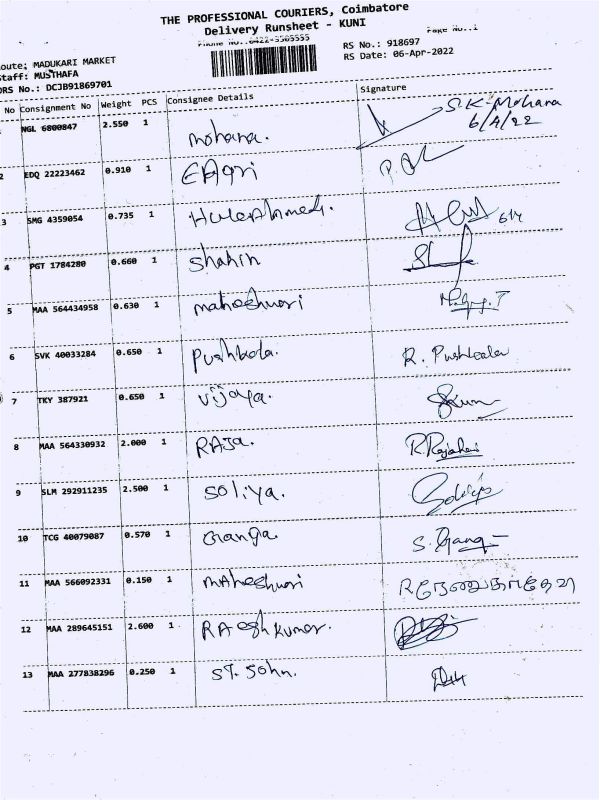 THE PROFESSIONAL COURIERS, Coimbatore
Delivery Runsheet - KUNI
Phone No.:0422-5505555
Page No.:1
oute: MADUKARI MARKET
RS No.: 918697
Staff: MUSTHAFA
RS Date: 06-Apr-2022
DRS No.: DCJB91869701
No Consignment No Weight PCS Consignee Details Signature
NGL 6800847 2.550 1 mohana. S.K. Mohana
6/4/22
2 EDQ 22223462 0.910 1
3 SMG 4359054 0.735 1 6/4
4 PGT 1784280 0.660 1 Shahin
5 MAA 564434958 0.630 1 maheshwari
6 SVK 40033284 0.650 1 Pushbala. R. Pushbala
7 TKY 387921 0.650 1 Vijaya.
8 MAA 564330932 2.000 1 RAJA.
9 SLM 292911235 2.500 1 Soliya.
10 TCG 40079087 0.570 1 Ganga. S. Ganga
11 MAA 566092331 0.150 1 MAheshwari
12 MAA 289645151 2.600 1 kumar.
13 MAA 277838296 0.250 1 ST. John.